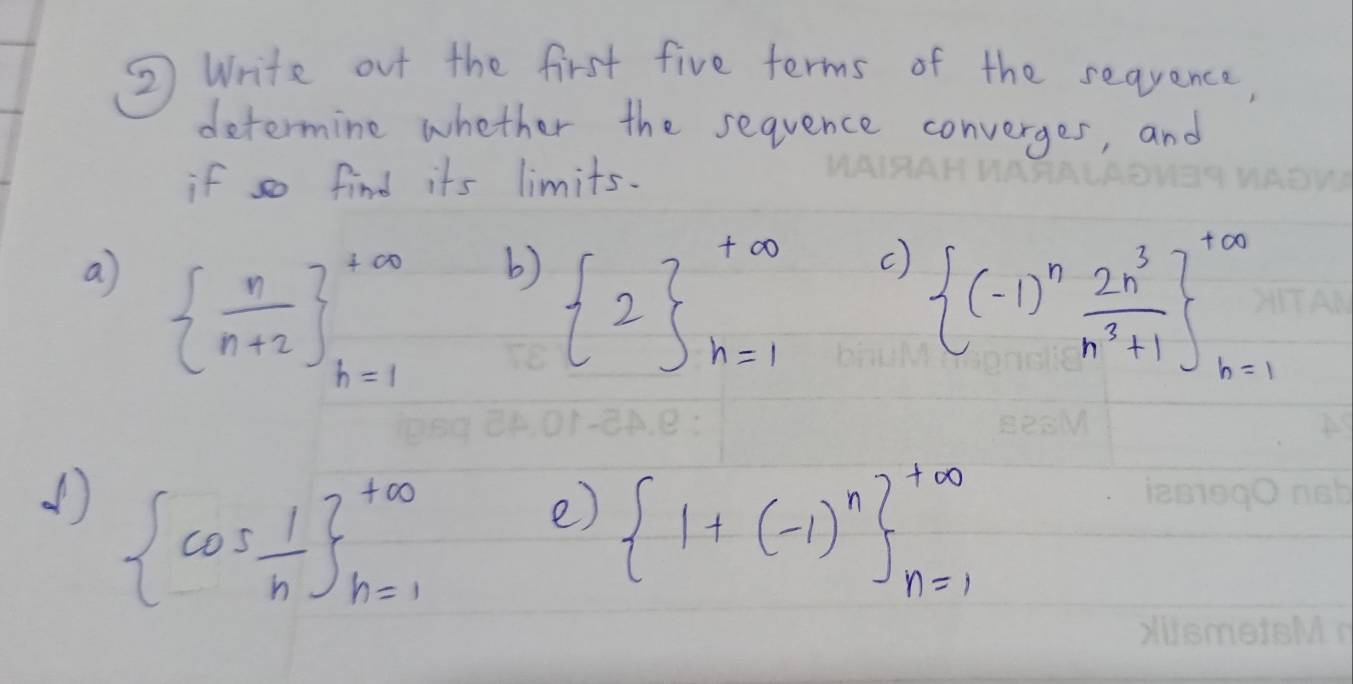 ② Write out the first five terms of the sequence,
determine whether the sequence converges, and
if so find its limits.
a) { n/(n+2) }_{n=1}^{+∞} b) { 2 }_{n=1}^{+∞} c) { (-1)^n 2n³/(n³+1) }_{n=1}^{+∞}
d) { cos 1/n }_{n=1}^{+∞} e) { 1 + (-1)^n }_{n=1}^{+∞}